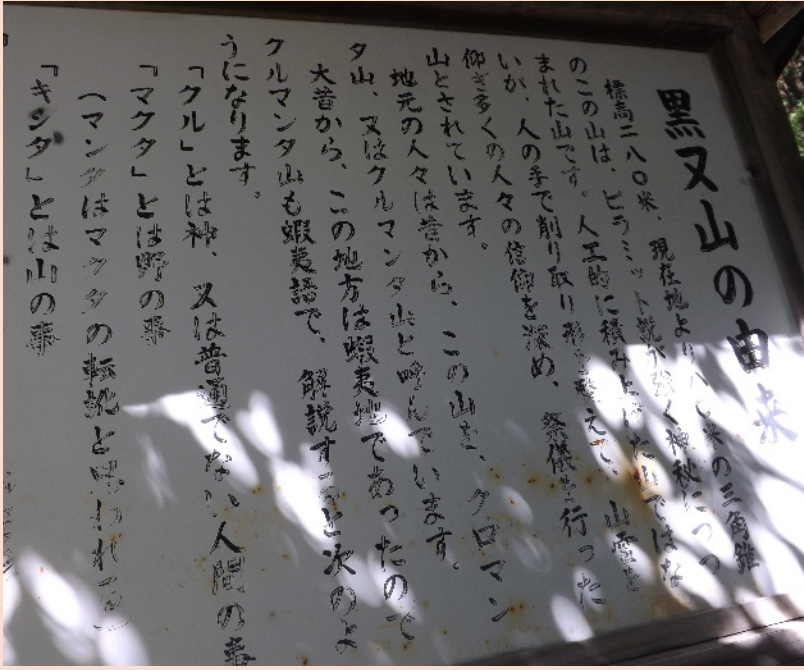 黒又山の由来
標高二八〇米、現在地より八〇米の三角錐
のこの山は、ピラミット説が強く神秘につつ
まれた山です。人工的に積み上げた山ではな
いが、人の手で削り取り形を整えて、山霊を
仰ぎ多くの人々の信仰を深め、祭儀を行った
山とされています。
地元の人々は昔から、この山を、クロマン
タ山、又はクルマンタ山と呼んでいます。
大昔から、この地方は蝦夷地であったので
クルマンタ山も蝦夷語で、解説すると次のよ
うになります。
「クル」とは神、又は普通でない人間の事
「マクタ」とは野の事
(マンタはマクタの転訛と思われる)
「キンタ」とは山の事